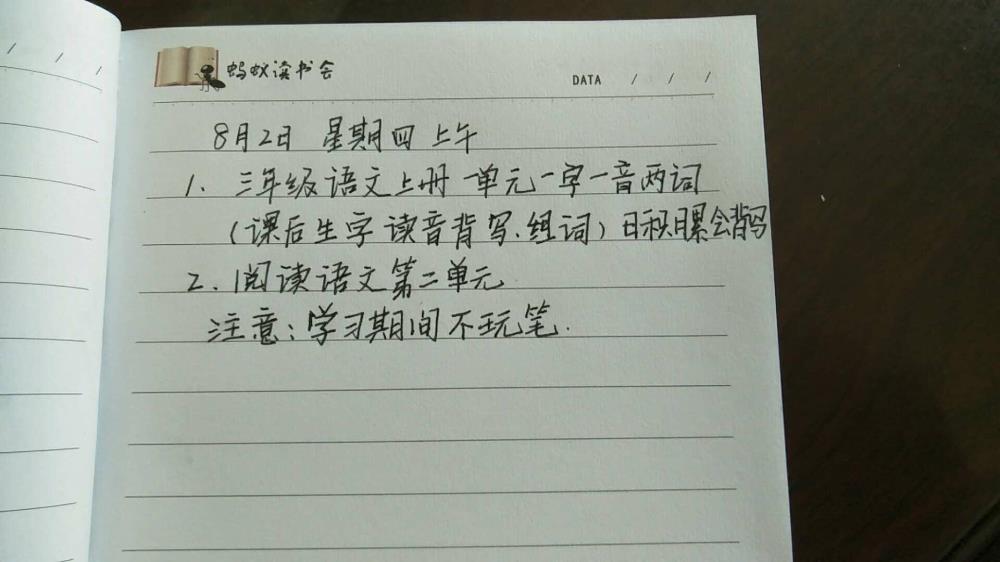 蚂蚁读书会
DATA / / /
8月2日 星期四 上午
1. 三年级语文上册 一单元一字一音两词
(课后生字 读音背写.组词) 日积月累会背写
2. 阅读语文第二单元
注意:学习期间不玩笔.